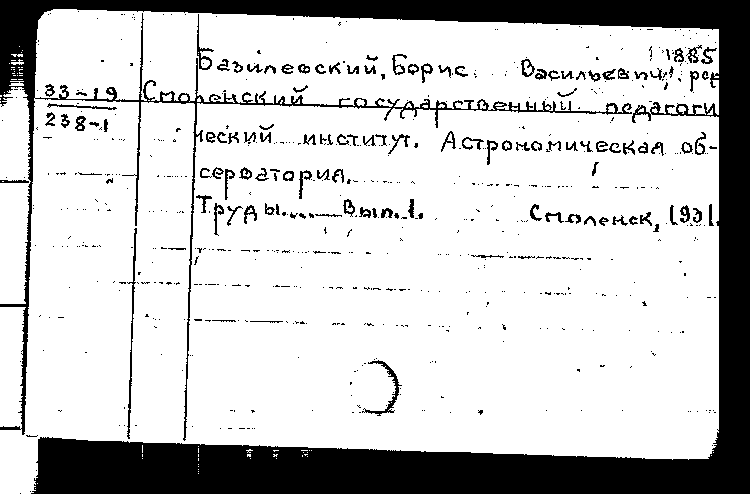 1885
Базилевский, Борис Васильевич, ред
33-19 Смоленский государственный педагоги
238-1
ческий институт. Астрономическая об-
серватория.
Труды.... Вып. 1. Смоленск, 1931.